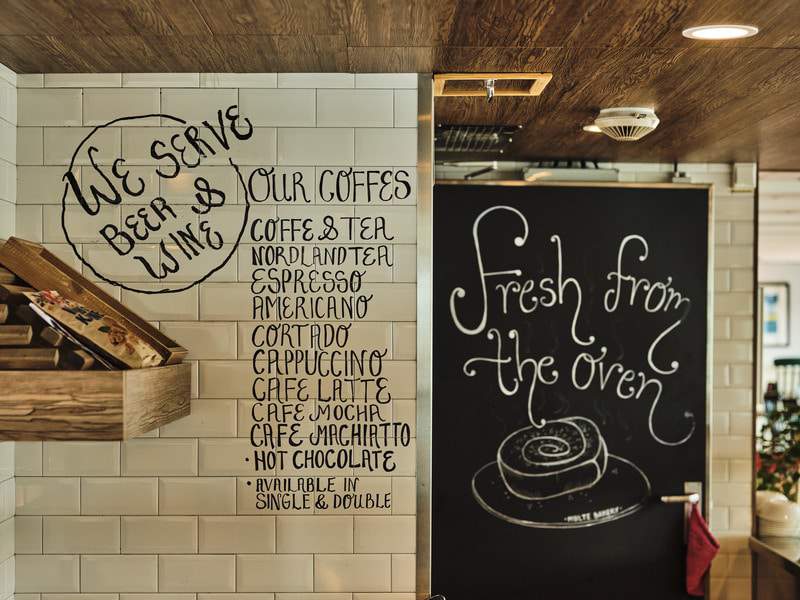 WE SERVE
BEER &
WINE
OUR COFFES
COFFE & TEA
NORDLANDTEA
ESPRESSO
AMERICANO
CORTADO
CAPPUCCINO
CAFE LATTE
CAFE MOCHA
CAFE MACHIATTO
• HOT CHOCOLATE
• AVAILABLE IN
SINGLE & DOUBLE
Fresh from
the oven
- MOLTE BAKERY -